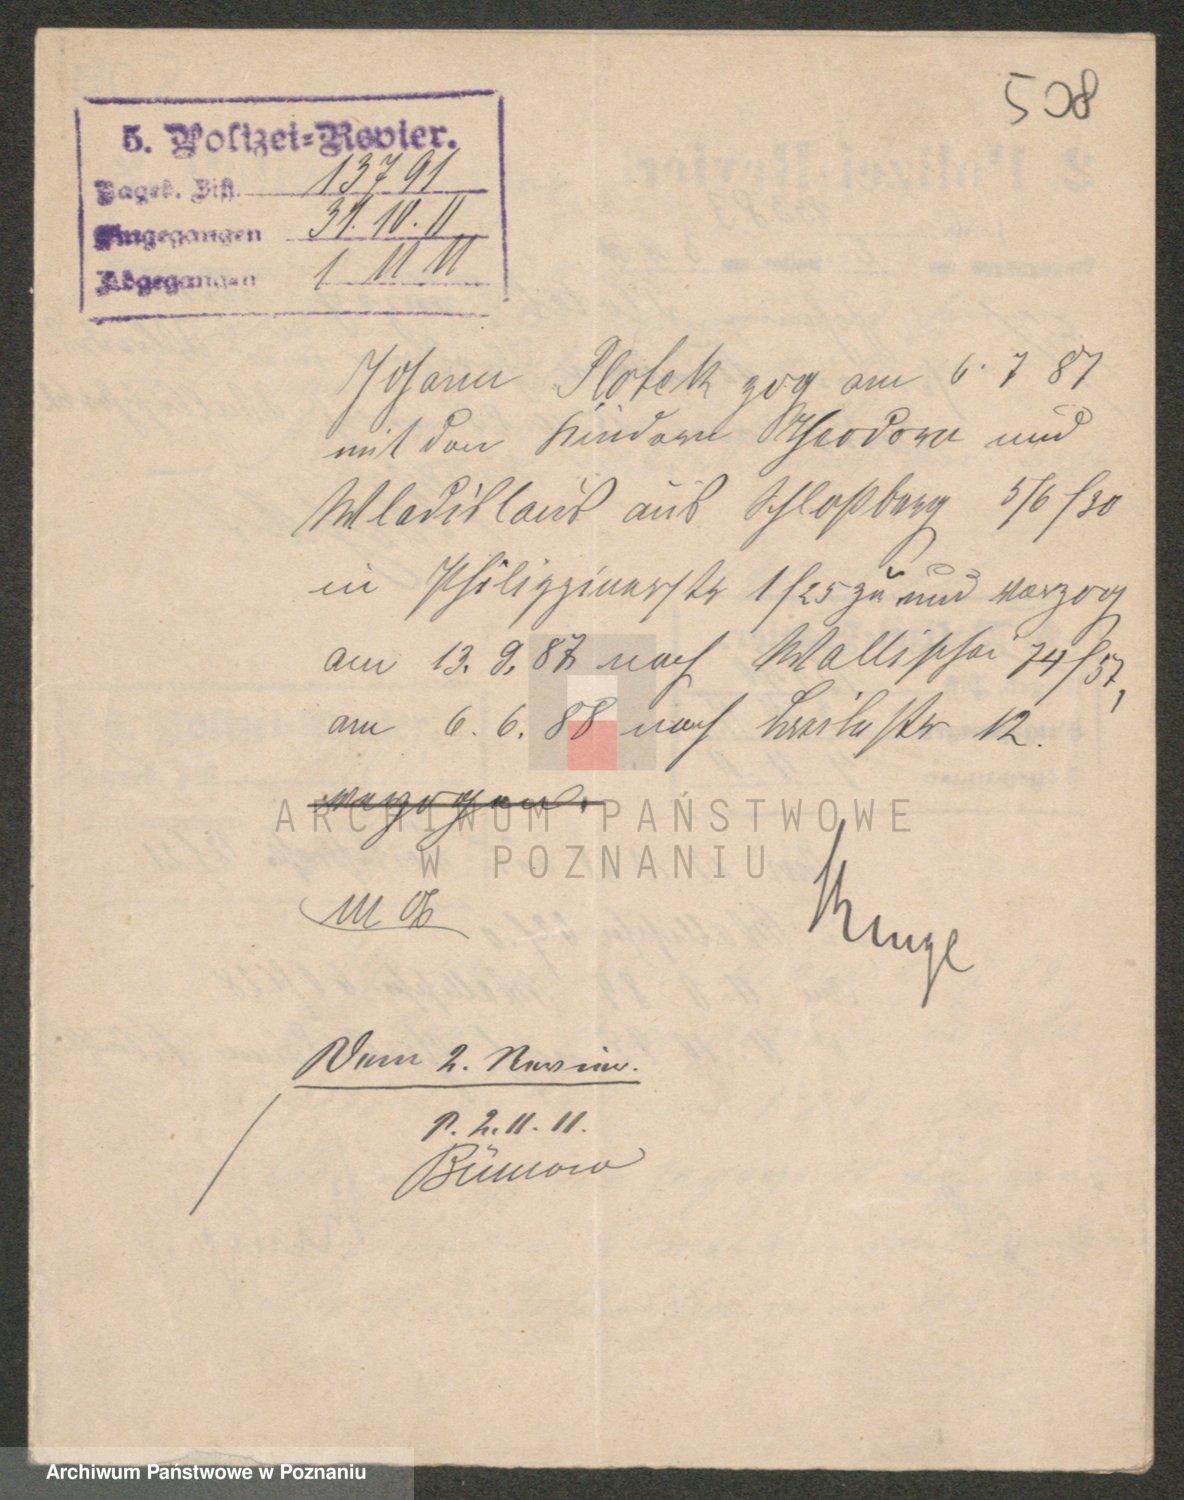 508
5. Polizei-Revier.
Tageb. Nr. 13791
Eingegangen 31.10.11
Abgegangen 1 11 11
Johann Plotek zog am 6. 7 87
mit den Kindern Theodora und
Wladislaus aus Schloßberg 5/6 /30
in Philippinenstr 1/25 zu und verzog
am 13. 9. 87 nach Wallischei 74/57,
am 6. 6. 88 nach 12.
verzogen.
ARCHIWUM PAŃSTWOWE
W POZNANIU
Kunze
Dem 2. Revier.
P. 2. 11. 11.
Archiwum Państwowe w Poznaniu